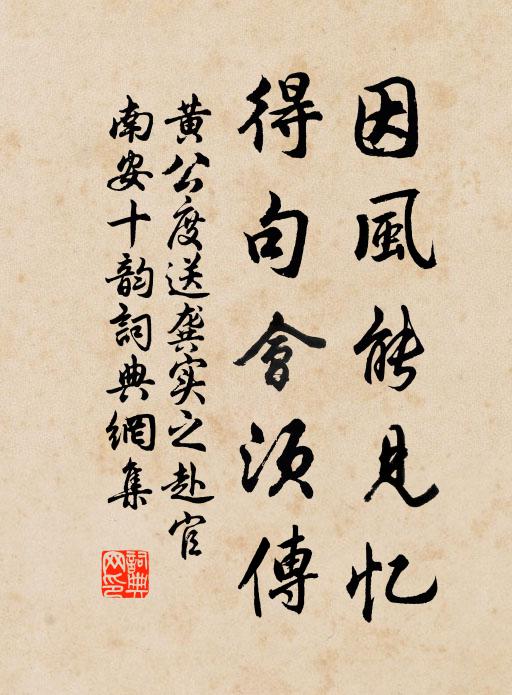 因風能見忆
得句會須傳
黄公度送龚实之赴官
南安十韵詞典網集
詞典
网印